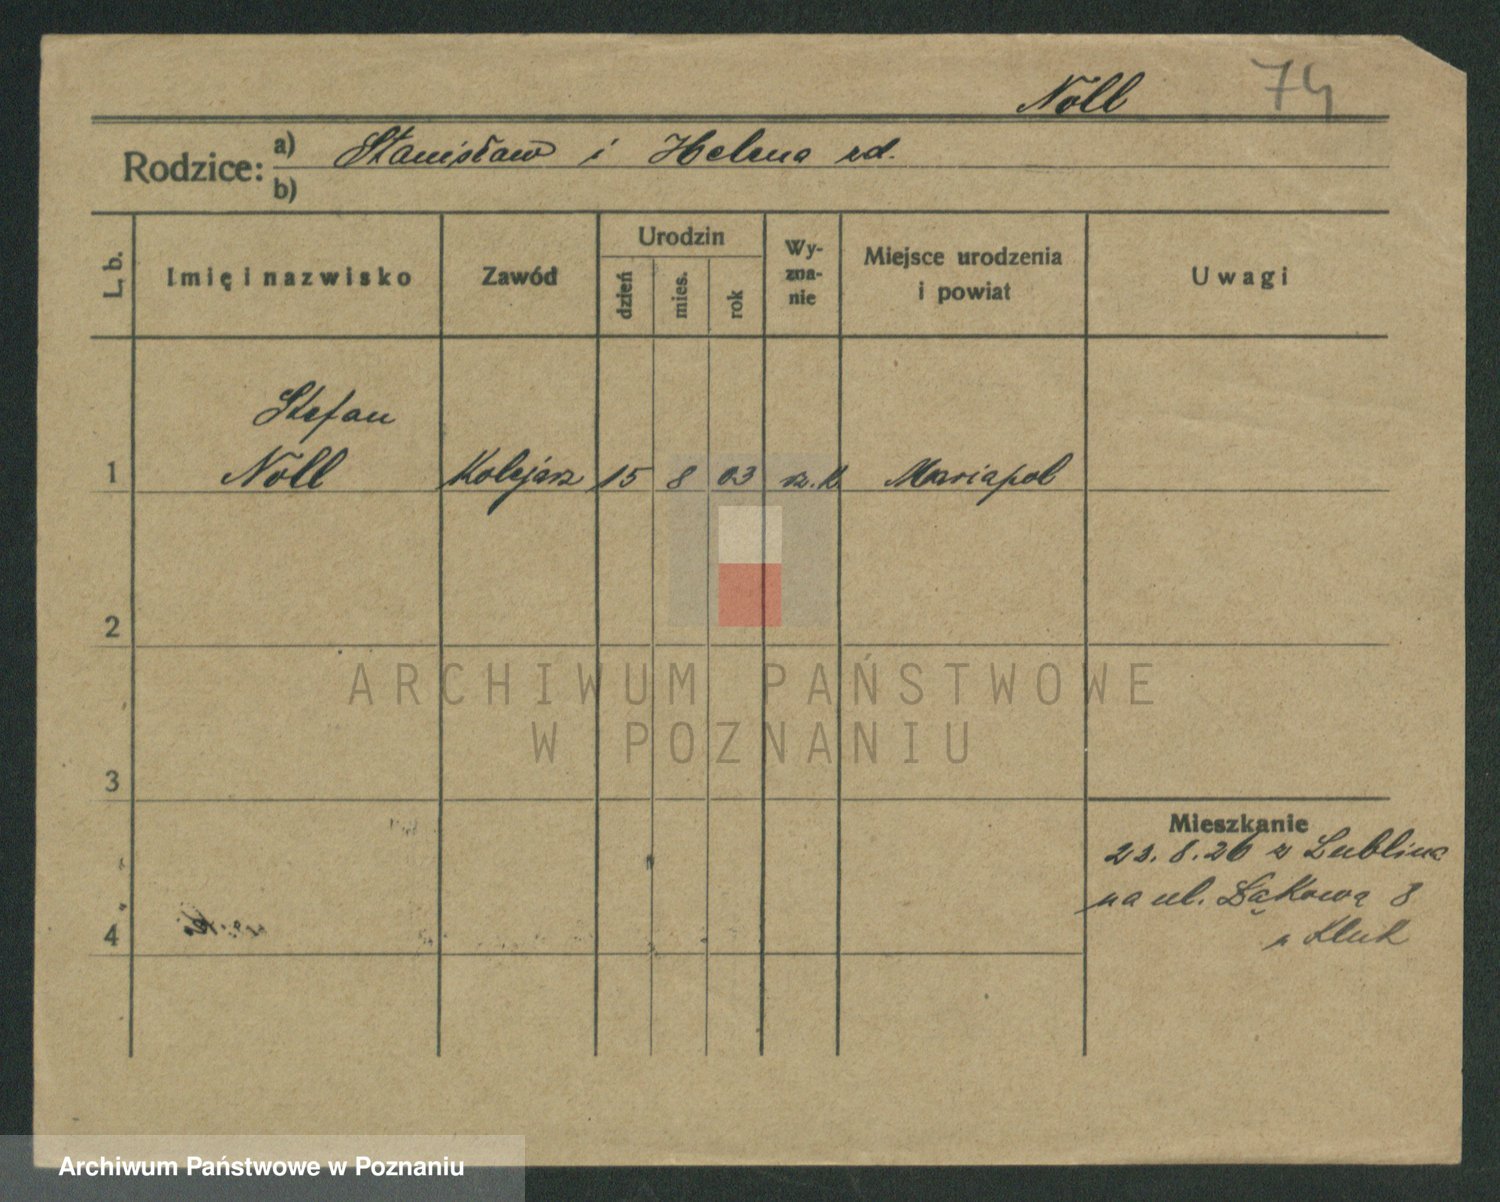 Nöll 74
Rodzice: a) Stanisław i Helena zd.
b)
L. b. Imię i nazwisko Zawód Urodzin dzień mies. rok Wyznanie Miejsce urodzenia i powiat Uwagi
Stefan
1 Nöll Kolejarz 15 8 03 rz. k Mariapol
2
3
4
Mieszkanie
23.8.26 z Lublina
na ul. Łąkową 8
u Kluk
ARCHIWUM PAŃSTWOWE
W POZNANIU
Archiwum Państwowe w Poznaniu